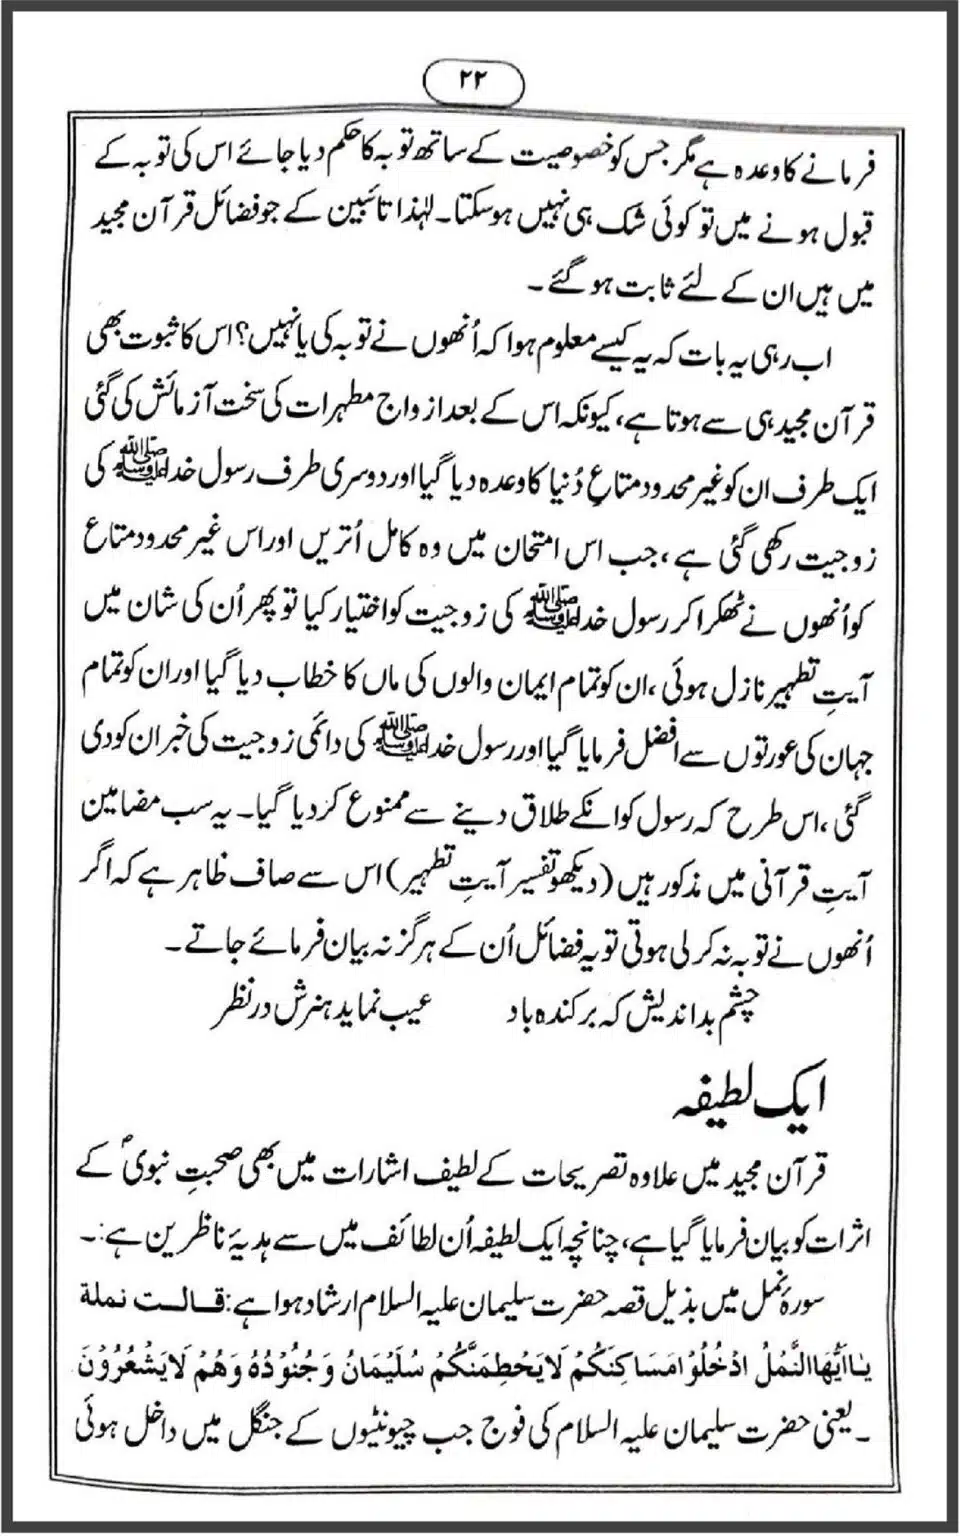 ۲۲
فرمانے کا وعدہ ہے مگر جس کو خصوصیت کے ساتھ توبہ کا حکم دیا جائے اس کی توبہ کے
قبول ہونے میں تو کوئی شک ہی نہیں ہوسکتا۔ لہٰذا تائبین کے جو فضائل قرآن مجید
میں ہیں ان کے لئے ثابت ہو گئے۔
اب رہی یہ بات کہ یہ کیسے معلوم ہوا کہ اُنھوں نے توبہ کی یا نہیں؟ اس کا ثبوت بھی
قرآن مجید ہی سے ہوتا ہے، کیونکہ اس کے بعد ازواج مطہرات کی سخت آزمائش کی گئی
ایک طرف ان کو غیر محدود متاعِ دُنیا کا وعدہ دیا گیا اور دوسری طرف رسول خدا ﷺ کی
زوجیت رکھی گئی ہے، جب اس امتحان میں وہ کامل اُتریں اور اس غیر محدود متاع
کو اُنھوں نے ٹھکرا کر رسول خدا ﷺ کی زوجیت کو اختیار کیا تو پھر اُن کی شان میں
آیتِ تطہیر نازل ہوئی، ان کو تمام ایمان والوں کی ماں کا خطاب دیا گیا اور ان کو تمام
جہان کی عورتوں سے افضل فرمایا گیا اور رسول خدا ﷺ کی دائمی زوجیت کی خبر ان کو دی
گئی، اس طرح کہ رسول کو انکے طلاق دینے سے ممنوع کر دیا گیا۔ یہ سب مضامین
آیتِ قرآنی میں مذکور ہیں (دیکھو تفسیر آیتِ تطہیر) اس سے صاف ظاہر ہے کہ اگر
اُنھوں نے توبہ نہ کر لی ہوتی تو یہ فضائل اُن کے ہرگز نہ بیان فرمائے جاتے۔
چشم بداندیش کہ برکندہ باد عیب نماید ہنرش در نظر
ایک لطیفہ
قرآن مجید میں علاوہ تصریحات کے لطیف اشارات میں بھی صحبتِ نبوی ؐ کے
اثرات کو بیان فرمایا گیا ہے، چنانچہ ایک لطیفہ اُن لطائف میں سے ہدیۂ ناظرین ہے:۔
سورۂ نمل میں بذیل قصہ حضرت سلیمان علیہ السلام ارشاد ہوا ہے: قالت نملة
يٰاَيُّهَا النَّمْلُ ادْخُلُوْا مَسَاكِنَكُمْ لَا يَحْطِمَنَّكُمْ سُلَيْمَانُ وَجُنُوْدُهُ وَهُمْ لَا يَشْعُرُوْنَ
۔یعنی حضرت سلیمان علیہ السلام کی فوج جب چیونٹیوں کے جنگل میں داخل ہوئی